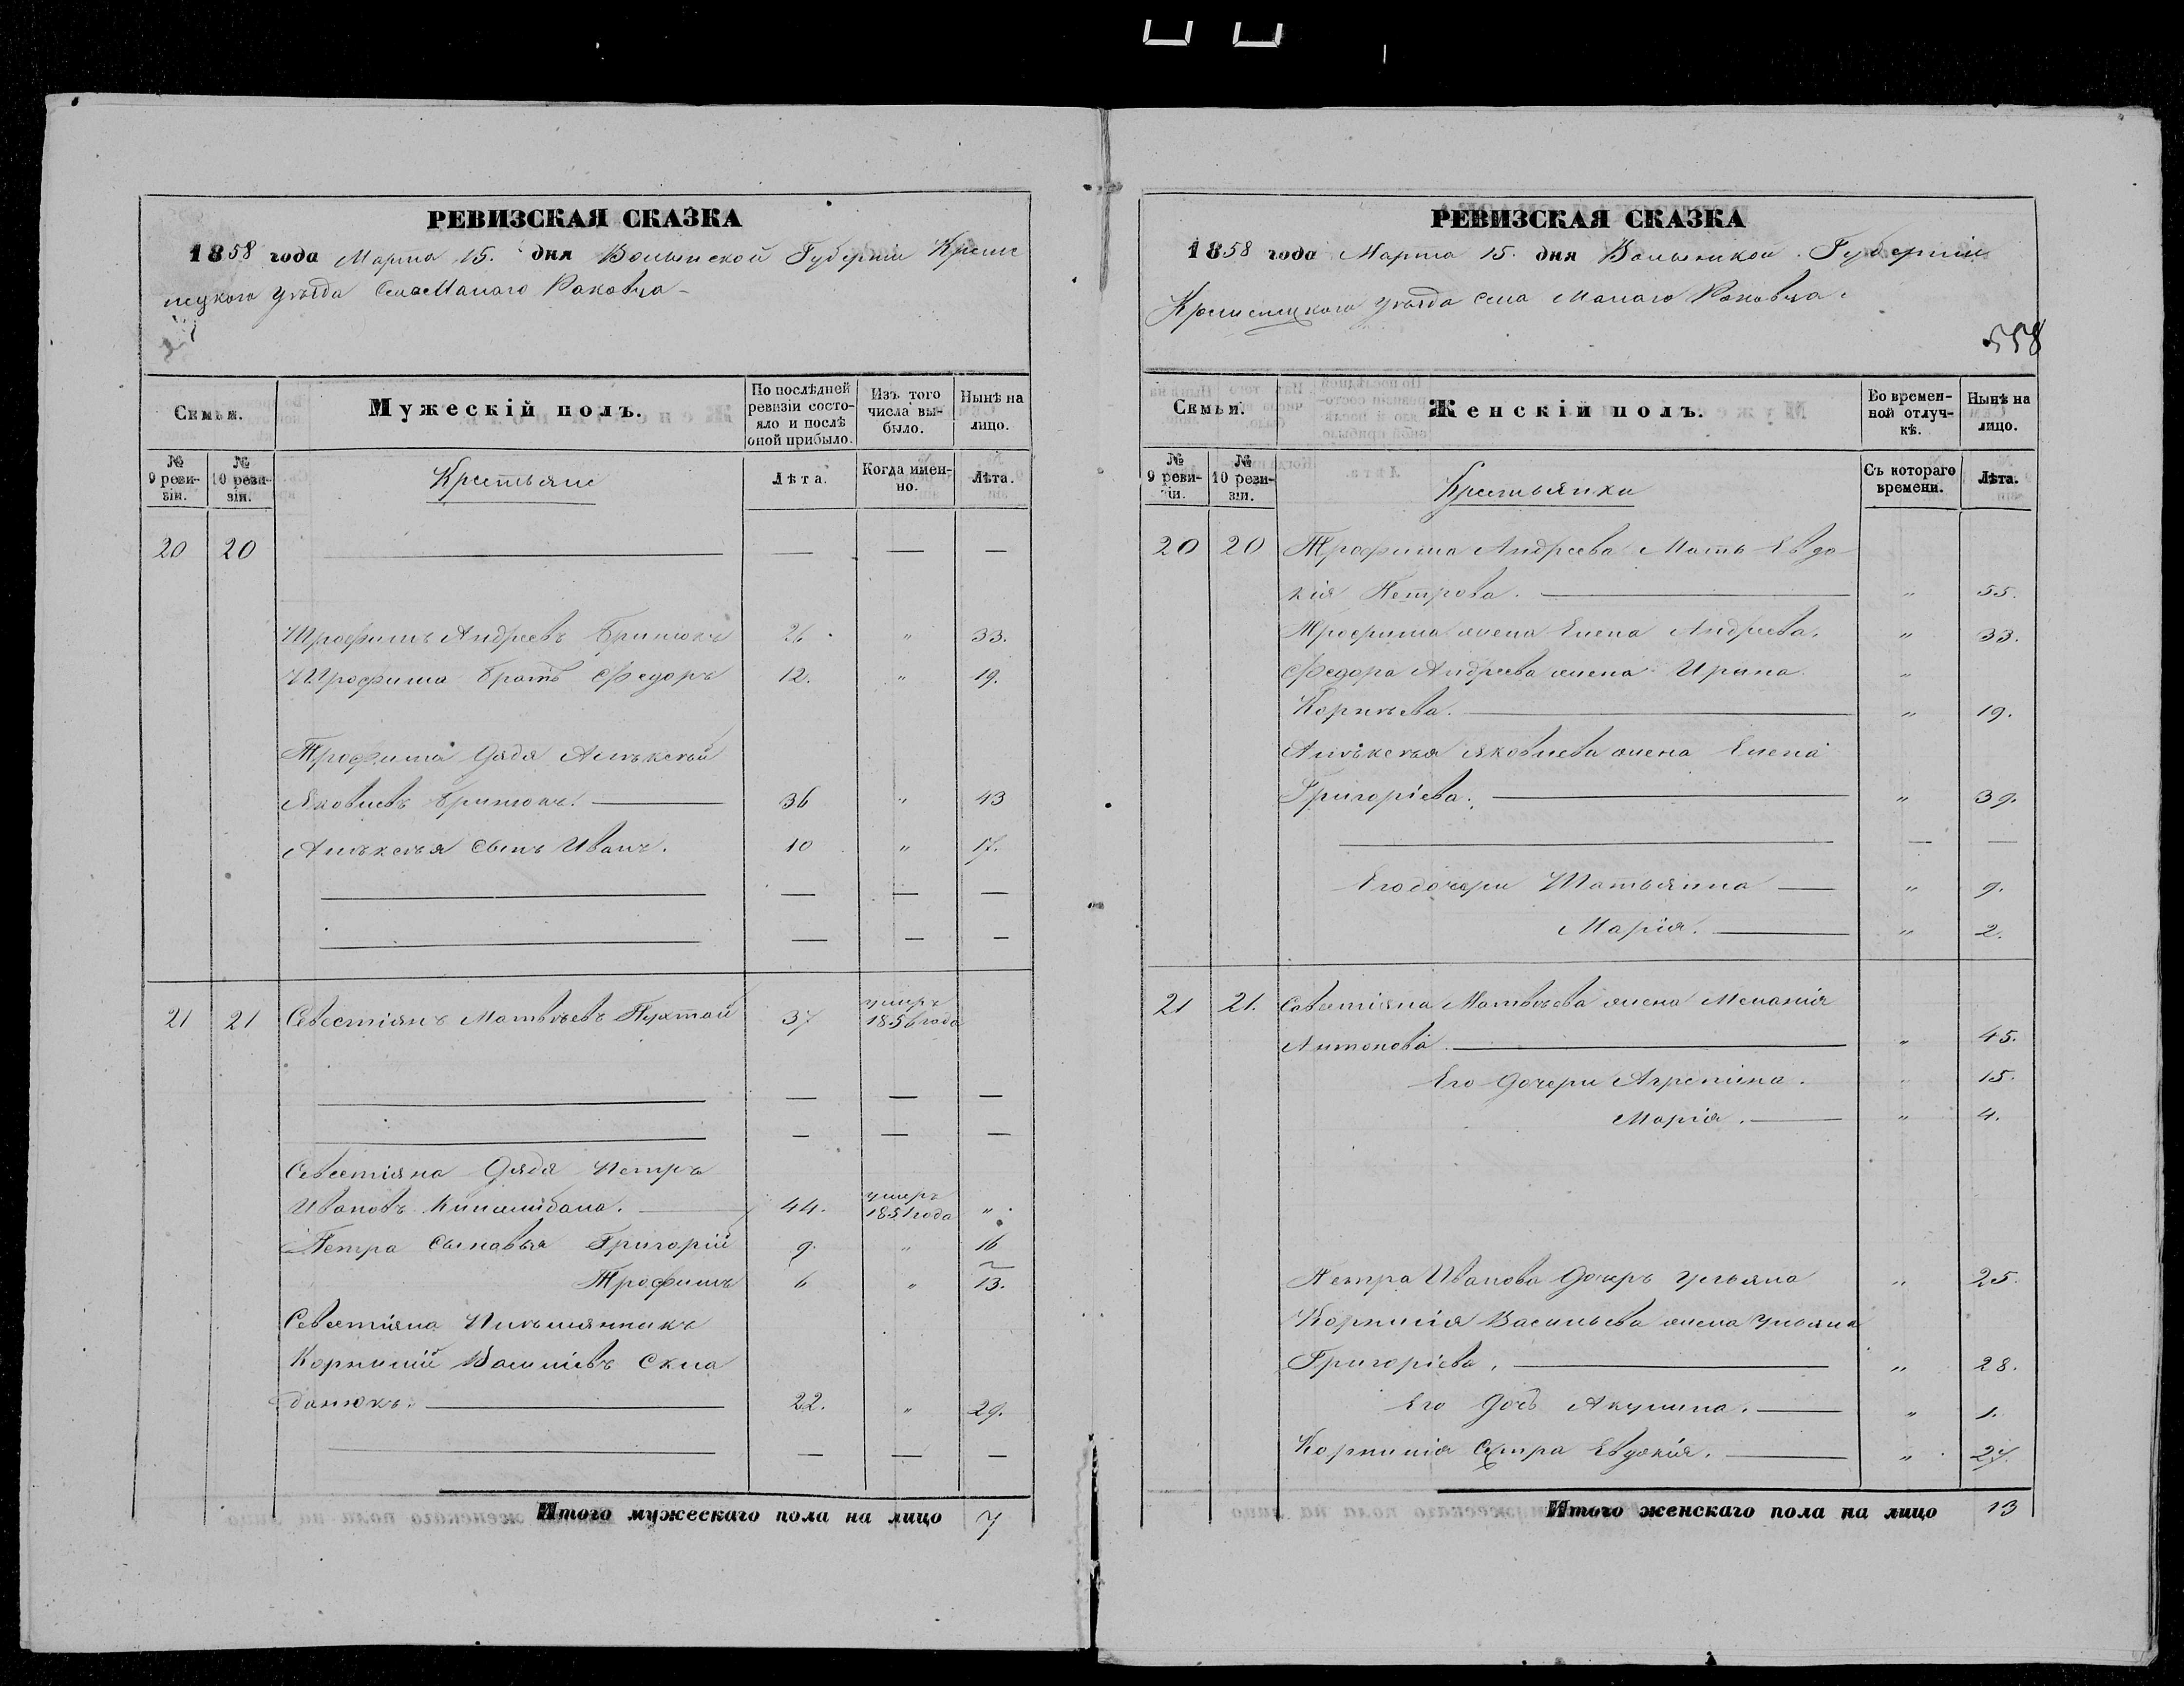 РЕВИЗСКАЯ СКАЗКА
1858 года Марта 15. дня Волынской Губерніи Креме
нецкого уѣзда Села Малаго Раковца
Семьи.
Мужескій полъ.
По послѣдней ревизіи состояло и послѣ оной прибыло.
Изъ того числа выбыло.
Нынѣ на лицо.
№ 9 ревизіи.
№ 10 ревизіи.
Крестьяне
Лѣта.
Когда именно.
Лѣта.
20 20 — — —
Трофимъ Андреевъ 26. " 33.
Трофима братъ Федоръ 12. " 19.
Трофима дядя Алѣксѣй
Яковлевъ 36 " 43
Алѣксѣя сынъ Иванъ. 10 " 17.
— — —
— — —
21 21 Севестіянъ Матвѣевъ 37 умеръ 1856 года
— — —
— — —
Севестіяна дядя Петръ
Ивановъ 44. умеръ 1851 года "
Петра сыновья Григорій 9. " 16
Трофимъ 6 " 13.
Севестіяна Племянникъ
Корнилій Василіевъ Скла
данюкъ. 22. " 29.
— — —
Итого мужескаго пола на лицо 7
РЕВИЗСКАЯ СКАЗКА
1858 года Марта 15. дня Волынской Губерніи
Кременецкого уѣзда села Малаго Раковца.
558
Семьи.
Женскій полъ.
Во временной отлучкѣ.
Нынѣ на лицо.
№ 9 ревизіи.
№ 10 ревизіи.
Крестьянки
Съ котораго времени.
Лѣта.
20 20 Трофима Андреева Мать Евдо
кія Петрова. " 55.
Трофима жена Елена Андреева. " 33.
Федора Андреева жена Ирина "
Корнѣева. " 19.
Алѣксѣя Яковлева жена Елена
Григоріева. " 39.
— —
Его дочери Татьянна " 9.
Марія. " 2.
21 21. Севестіяна Матвѣева жена Меланія
Антонова " 45.
Его дочери Агрепина. " 15.
Марія. " 4.
Петра Иванова дочеръ Ульяна " 25.
Корнилія Васильева жена Ульяна
Григоріева. " 28.
Его дочь Акулина. " 1.
Корнилія Сестра Евдокія. " 27.
Итого женскаго пола на лицо 13